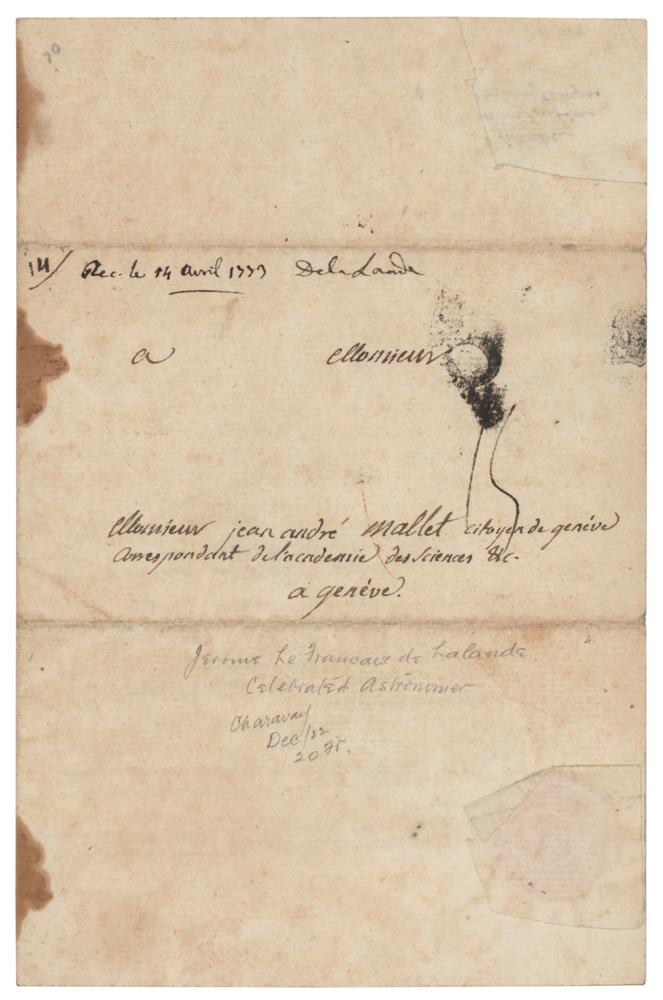 90
14/ Rec. le 14 avril 1773 De la Lande
a Monsieur
Monsieur jean andré mallet citoyen de genéve
Correspondant de l'academie des sciences &c.
a genéve.
Jerome Le Francais de Lalande
Celebrated Astronomer
Charavay
Dec/22
20 Fr.